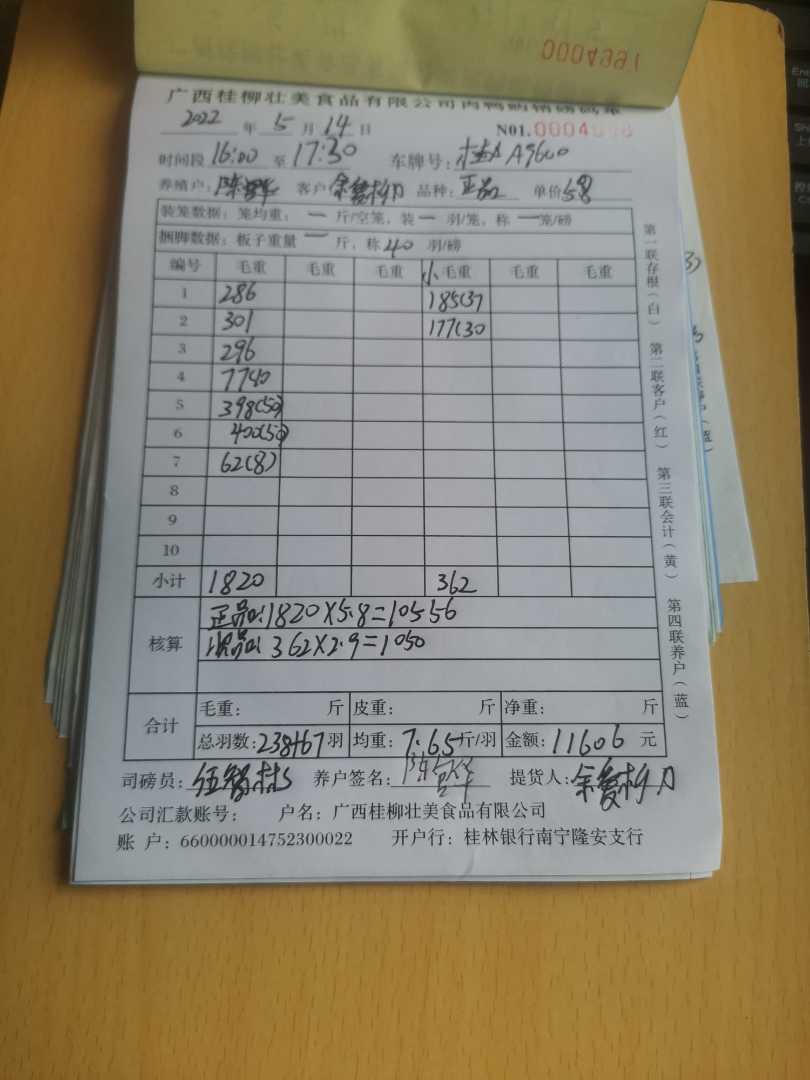 0004991
广西桂柳壮美食品有限公司肉鸭购销磅码单
2022 年 5 月 14 日 N01.0004
时间段 16:00 至 17:30 车牌号: A9600
养殖户: 客户 品种: 正品 单价 5.8
装笼数据: 笼均重: 一 斤/空笼, 装 一 羽/笼, 称 一 笼/磅
捆脚数据: 板子重量 一 斤, 称 40 羽/磅
编号 毛重 毛重 毛重 小 毛重 毛重 毛重
1 286 185(37
2 301 177(30
3 296
4 7740
5 398(50)
6 400(50)
7 62(8)
8
9
10
小计 1820 362
核算 正品: 1820×5.8=10556
次品: 362×2.9=1050
合计 毛重: 斤 皮重: 斤 净重: 斤
总羽数: 238+67 羽 均重: 7.65 斤/羽 金额: 11606 元
司磅员: 养户签名: 提货人:
公司汇款账号: 户名: 广西桂柳壮美食品有限公司
账 户: 660000014752300022 开户行: 桂林银行南宁隆安支行
第一联存根(白) 第二联客户(红) 第三联会计(黄) 第四联养户(蓝)